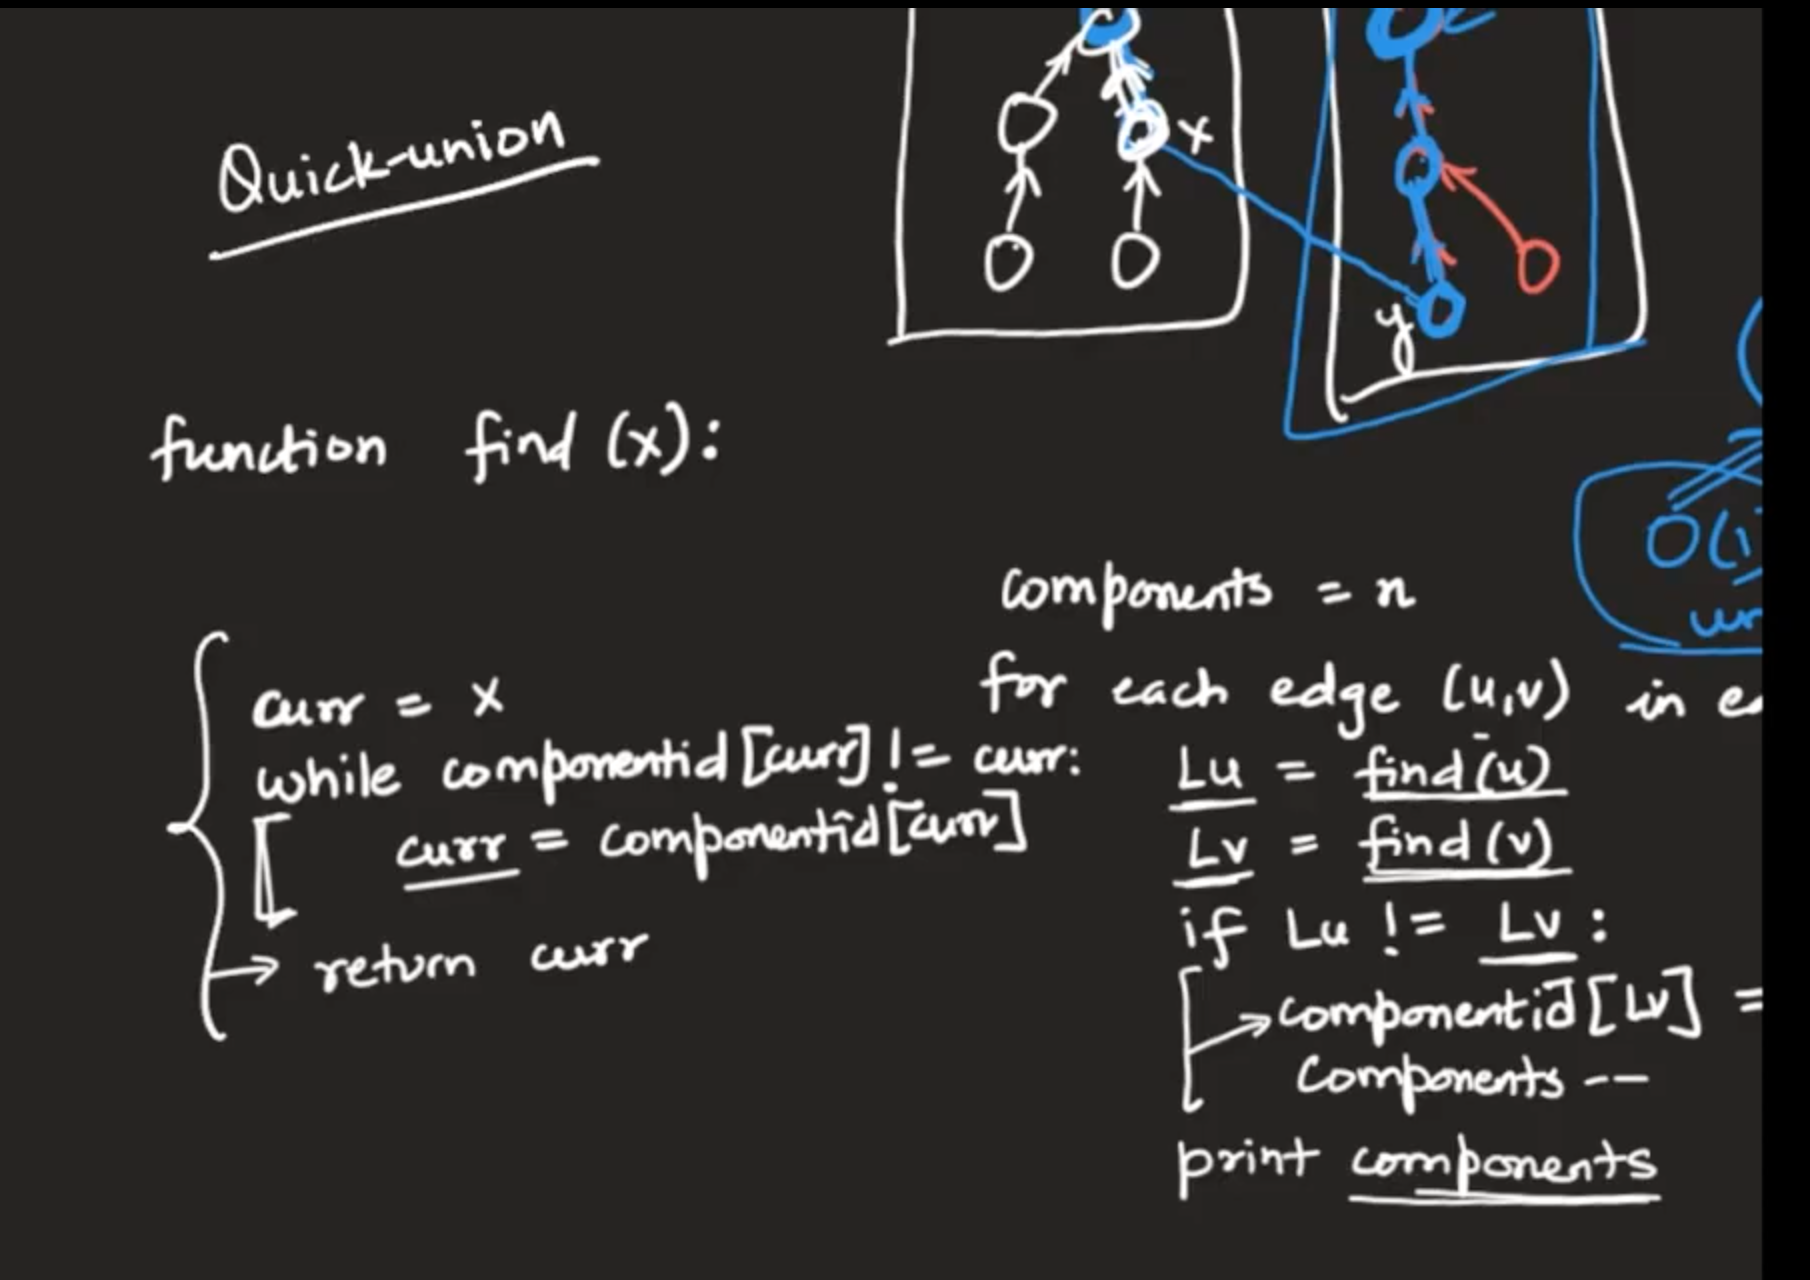 Quick-union
x
y
function find (x):
curr = x
while componentid [curr] != curr:
curr = componentid [curr]
return curr
O(1
components = n
for each edge (u,v) in
Lu = find (u)
Lv = find (v)
if Lu != Lv :
componentid [Lv] =
Components --
print components